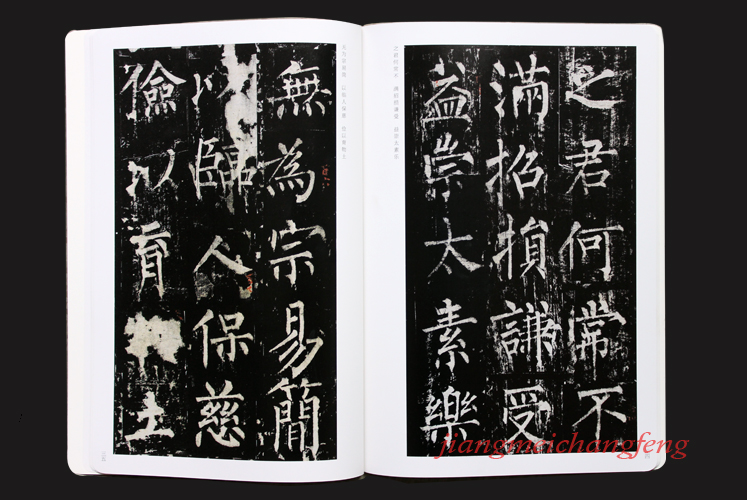 之君何常不
滿招損謙受
益崇太素樂
無為宗易簡
以臨人保慈
儉以育
土
jiangmeichangfeng